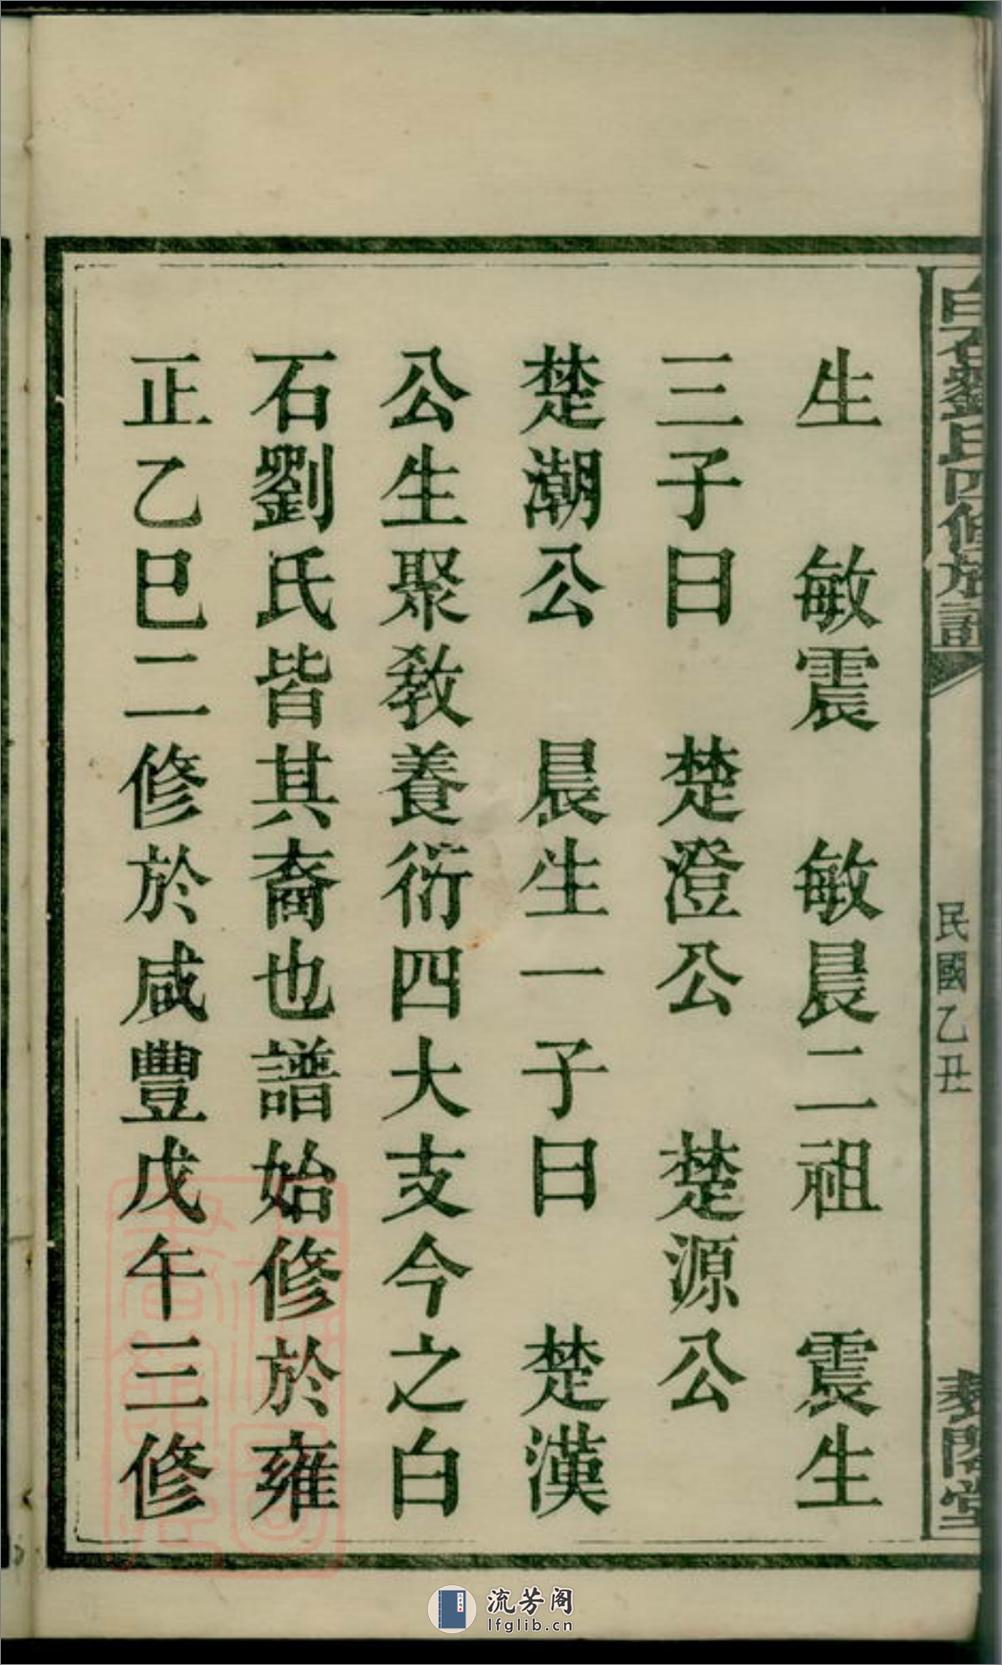 白石劉氏四修族譜
民國乙丑
藜閣堂
生　敏震　敏晨二祖　震生
三子曰　楚澄公　楚源公
楚潮公　晨生一子曰　楚漢
公生聚教養衍四大支今之白
石劉氏皆其裔也譜始修於雍
正乙巳二修於咸豐戊午三修
流芳阁
lfglib.cn